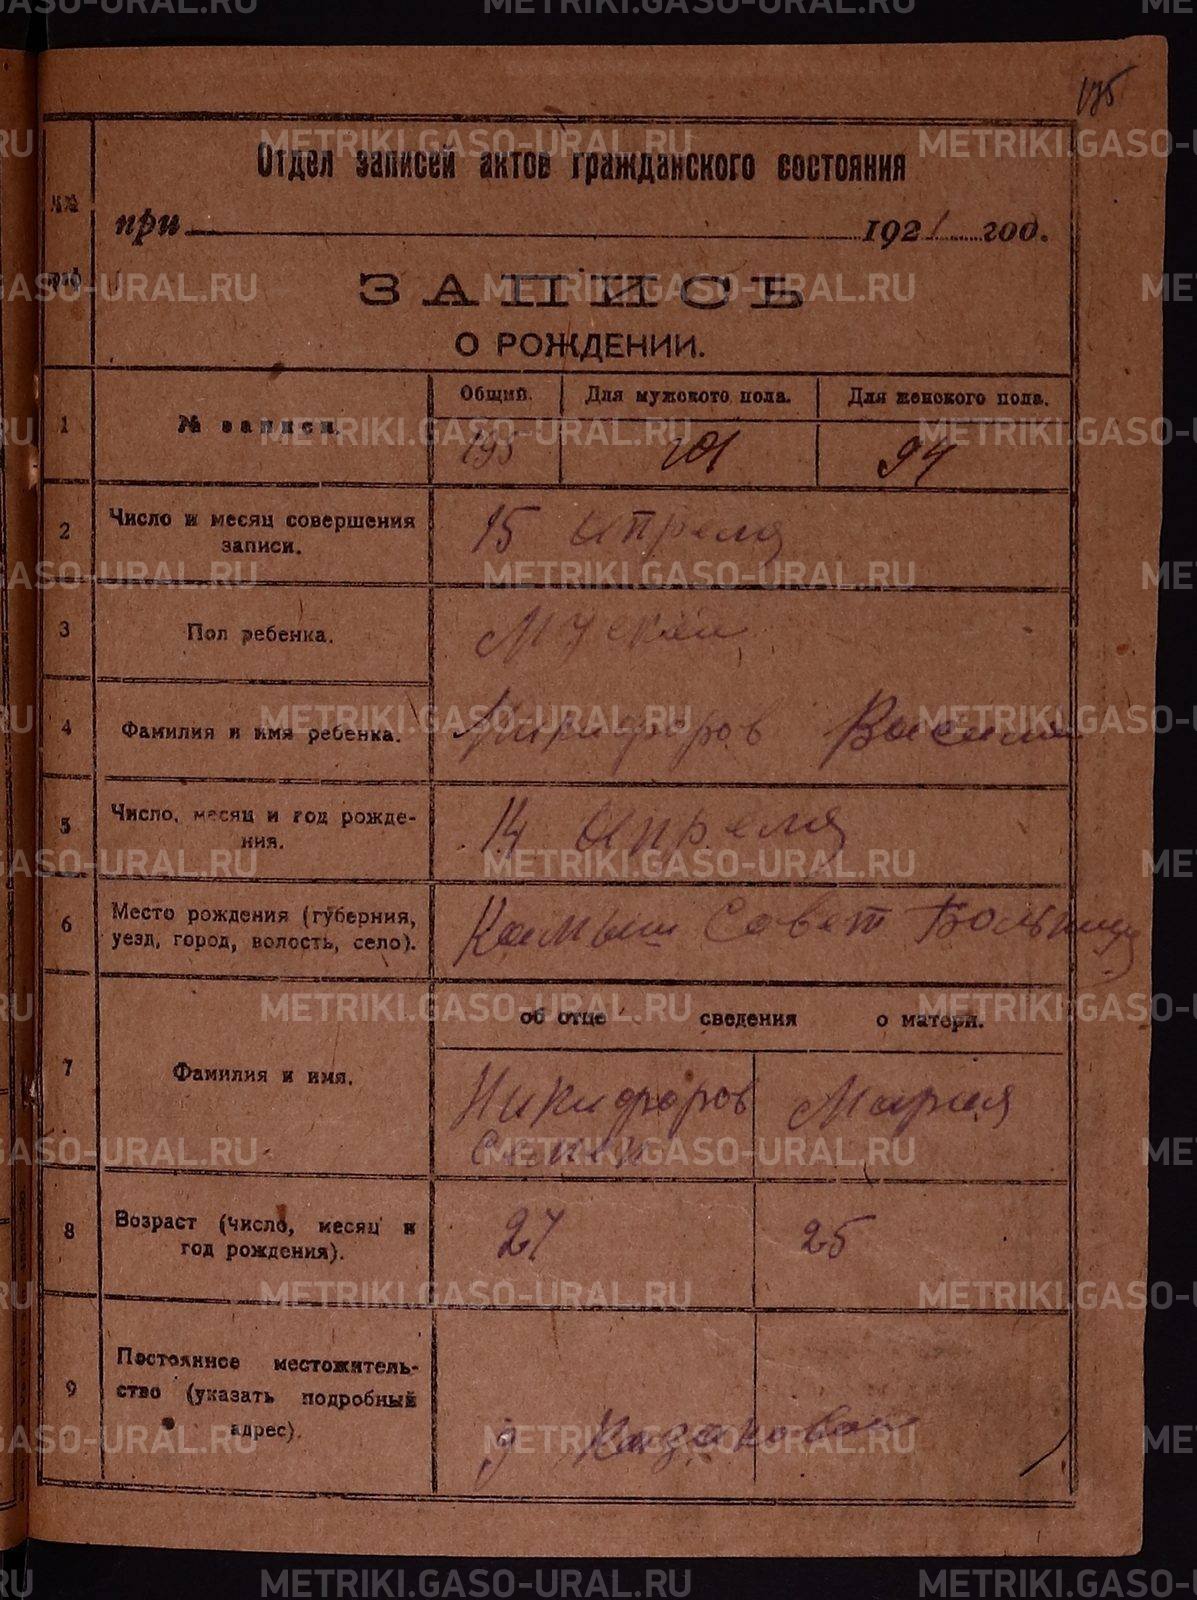 METRIKI.GASO-URAL.RU
Отдел записей актов гражданского состояния
при 1921 год.
№№ граф
ЗАПИСЬ
О РОЖДЕНИИ.
1
№ записи.
Общий.
Для мужского пола.
Для женского пола.
195
101
94
2
Число и месяц совершения
записи.
15 апреля
3
Пол ребенка.
4
Фамилия и имя ребенка.
Никифоров
5
Число, месяц и год рожде-
ния.
14 апреля
6
Место рождения (губерния,
уезд, город, волость, село).
Камыш Совет
об отце сведения о матери.
7
Фамилия и имя.
Никифоров
Семен
Мария
8
Возраст (число, месяц и
год рождения).
27
25
9
Постоянное местожитель-
ство (указать подробный
адрес).